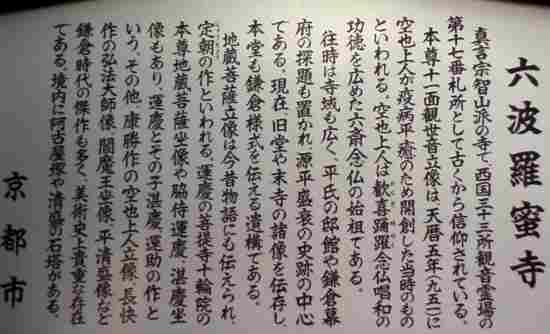 六波羅蜜寺
真言宗智山派の寺で、西国三十三所観音霊場の
第十七番札所として古くから信仰されている。
本尊十一面観世音立像は、天暦五年(九五一)に
空也上人が疫病平癒のため開創した当時のもの
といわれる。空也上人は歓喜踊躍念仏唱和の
功徳を広めた六斎念仏の始祖である。
往時は寺域も広く、平氏の邸館や鎌倉幕
府の探題も置かれ、源平盛衰の史跡の中心
である。現在、旧堂や末寺の諸像を伝存し、
本堂も鎌倉様式を伝える遺構である。
地蔵菩薩立像は今昔物語にも伝えられ、
定朝の作といわれる。運慶の菩提寺十輪院の
本尊地蔵菩薩坐像や脇侍運慶、湛慶坐
像もあり、運慶とその子湛慶、運助の作と
いう。その他、康勝作の空也上人立像、長快
作の弘法大師像、閻魔王坐像、平清盛像など
鎌倉時代の傑作も多く、美術史上貴重な存在
である。境内に阿古屋塚や清盛の石塔がある。
京都市